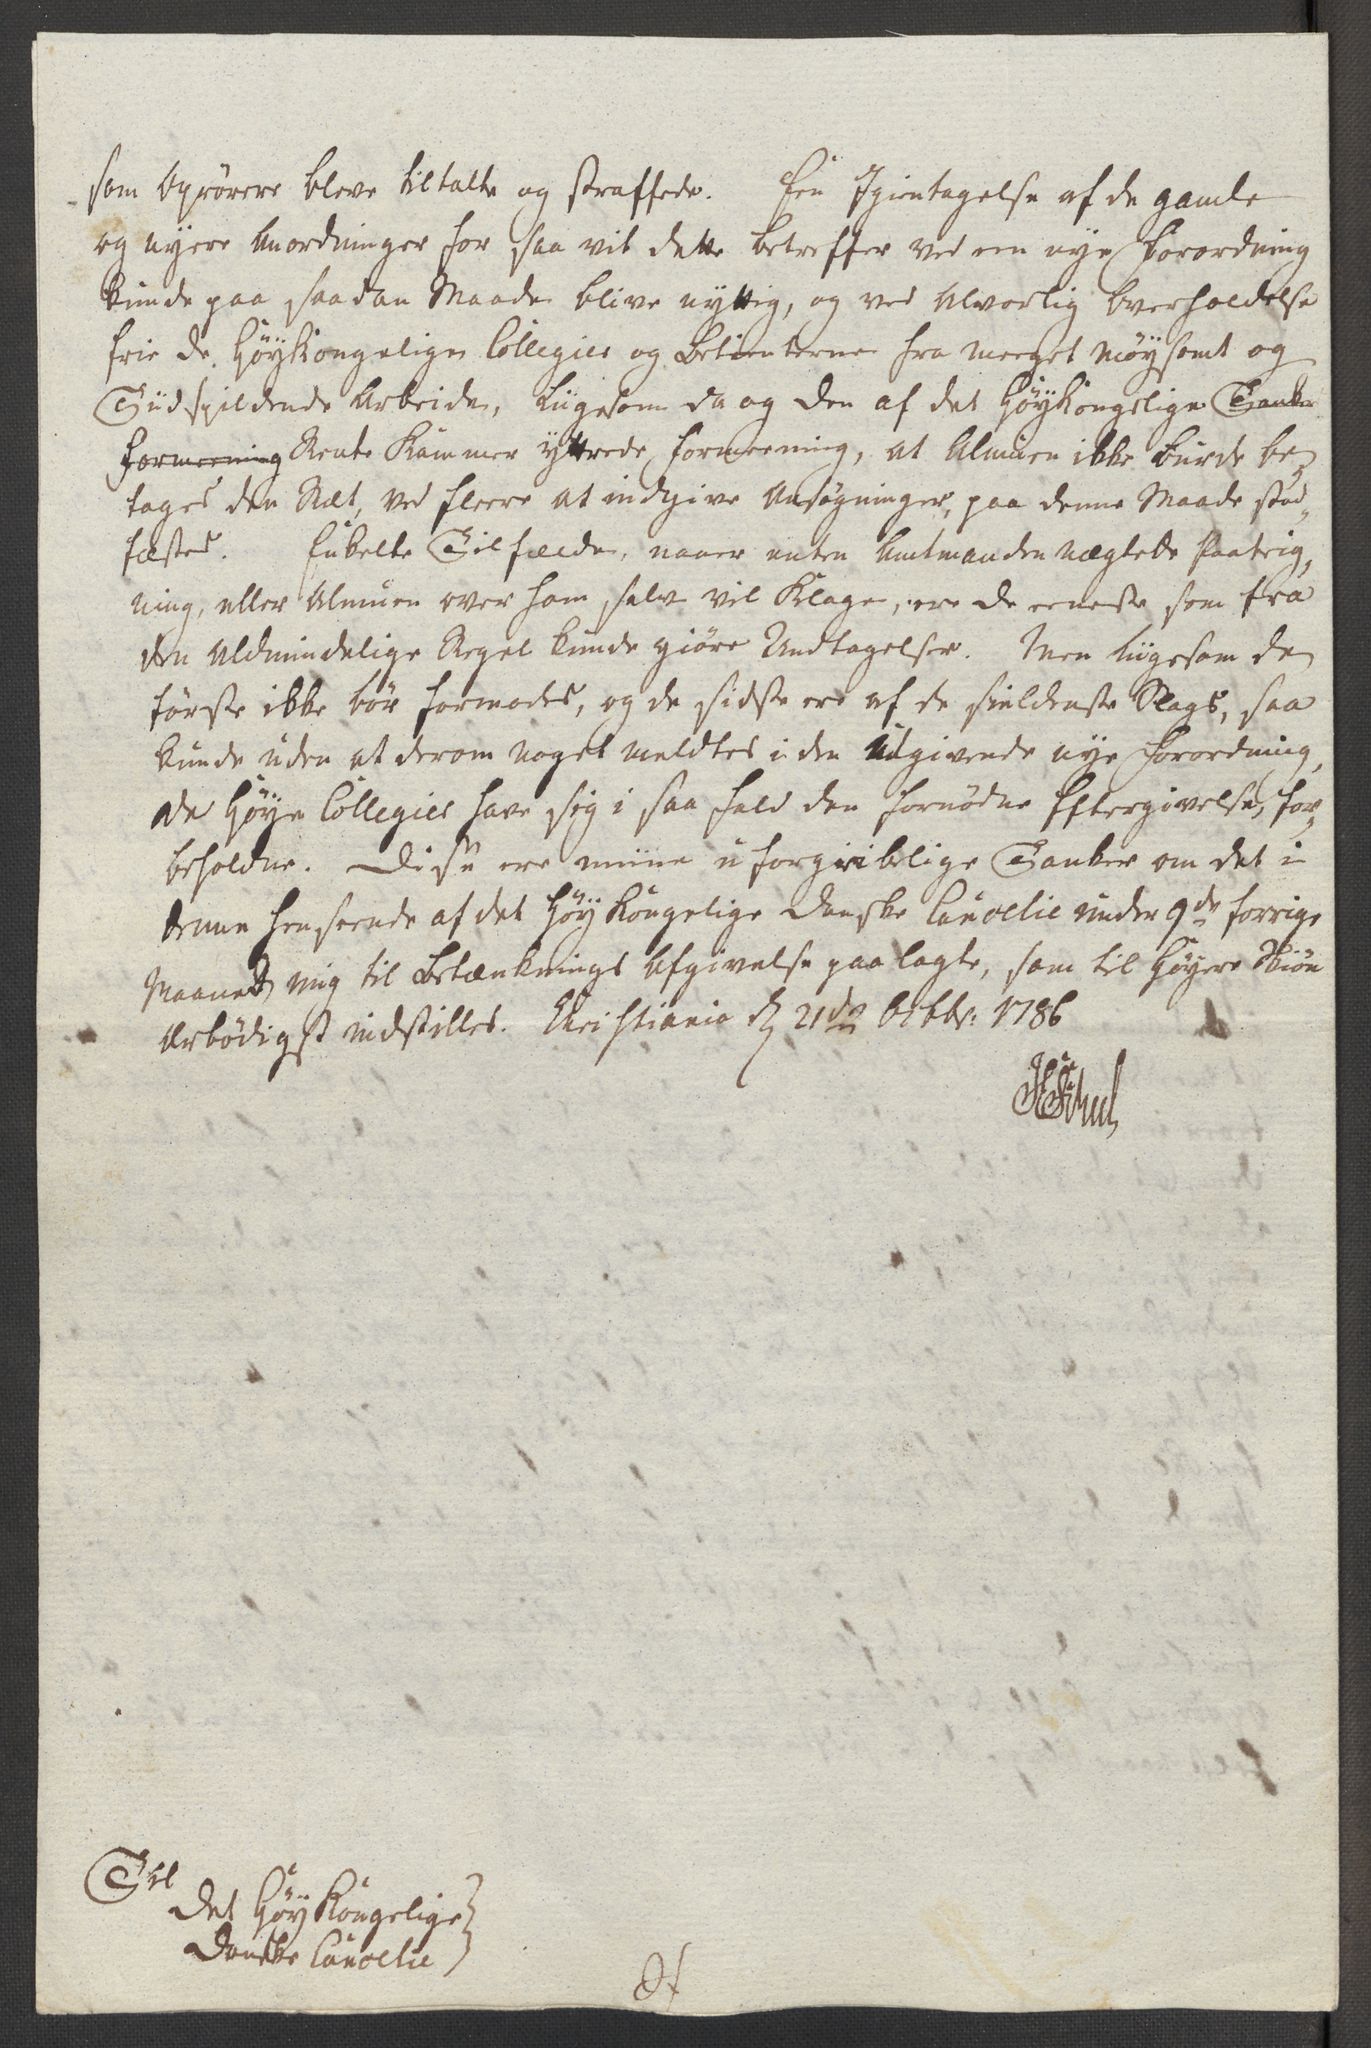 som Oprörere bleve tiltalte og straffede. Een Igientagelse af de gamle
og nyere Anordninger for saa vit dette betreffer ved een nye Forordning
kunde paa saadan Maade blive nyttig, og ved Alvorlig Overholdelse
frie de HöyKongelige Collegier og Betienterne fra meeget möysomt og
Tiidspildende Arbeide, liigesom da og den af det HöyKongelige Tanke
Formeening Rente Kammer yttrede Formeening, at Almuen ikke burde be¬
tages den Ræt, ved fleere at indgive Ansögninger, paa denne Maade stad¬
fæstes. Enkelte Tilfælde, naaer enten Amtmanden nægtede Paateig¬
ning, eller Almuen over ham selv vil Klage, ere de eeneste som fra
den Aldmindelige Regel kunde giöre Undtagelser. Men liigesom de
förste ikke bör formodes, og de sidste ere af de sieldenste Slags, saa
kunde uden at derom noget meldtes i den udgivende nye Forordning,
de Höye Collegier have sig i saa fald den fornödne Eftergivelse, for¬
beholdne. Disse ere miine uforgribelige Tanker om det i
denne henseende af det HöyKongelige Danske Cancelie under 9de forrige
Maaned mig til Betæknings Afgivelse paalagte, som til Höyere Skiön
Ærbödigst indstilles. Christiania d 21de Octbr: 1786
Til
Det HöyKongelige
Danske Cancelie